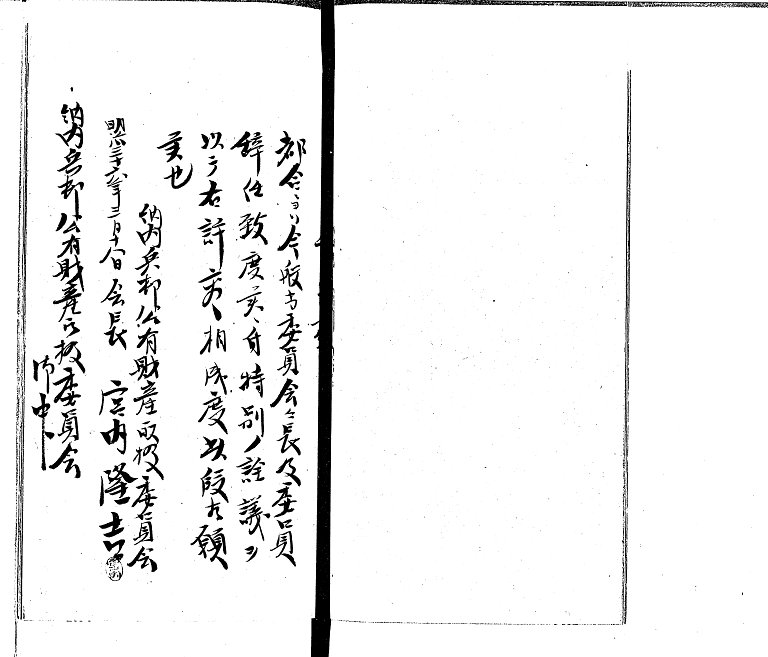 都合ニヨリ今般本委員会々長及委員
辞任致度候ニ付特別ノ詮議ヲ
以テ右許容相成度此段相願
候也
納内兵村公有財産取扱委員会
明治三十六年三月十八日会長 宮内隆吉
納内兵村公有財産取扱委員会
御中